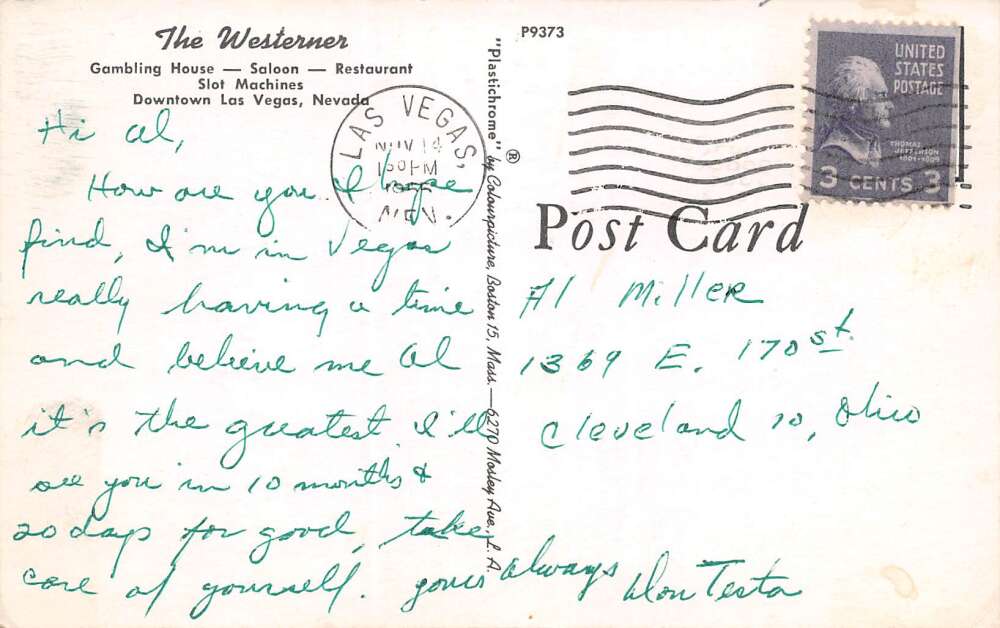 The Westerner
Gambling House — Saloon — Restaurant
Slot Machines
Downtown Las Vegas, Nevada
Hi Al,
How are you. I hope
find, I'm in Vegas
really having a time
and believe me Al
it's the greatest. I'll
see you in 10 months &
20 days for good, take
care of yourself. yours always Don Testa
"Plastichrome" ® by Colourpicture, Boston 15, Mass. — 6270 Mosley Ave., L. A.
P9373
LAS VEGAS,
NOV 14
1 30 PM
NEV.
UNITED
STATES
POSTAGE
THOMAS
JEFFERSON
1801-1809
3 CENTS 3
Post Card
Al Miller
1369 E. 170 st.
Cleveland 10, Ohio